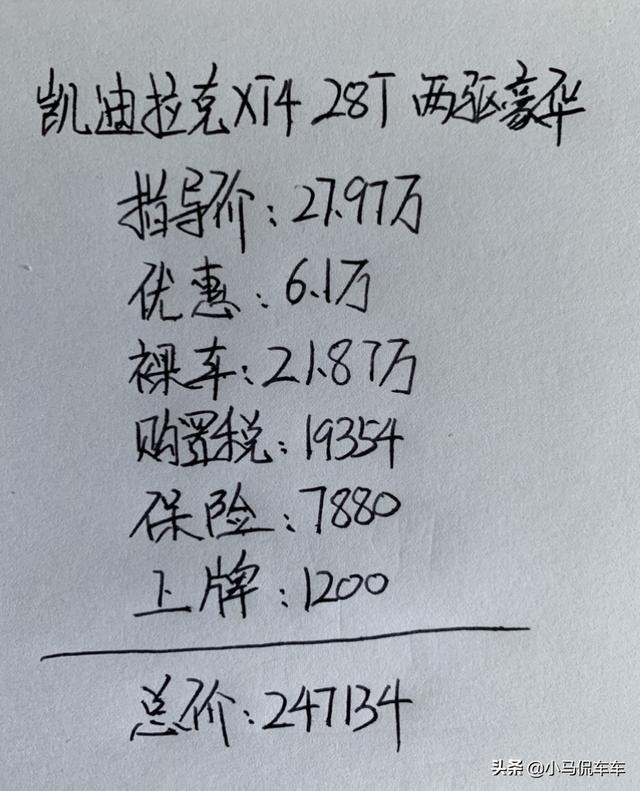 凯迪拉克XT4 28T 两驱豪华
指导价:27.97万
优惠:6.1万
裸车:21.87万
购置税:19354
保险:7880
上牌:1200
总价:247134
头条 @小马侃车车